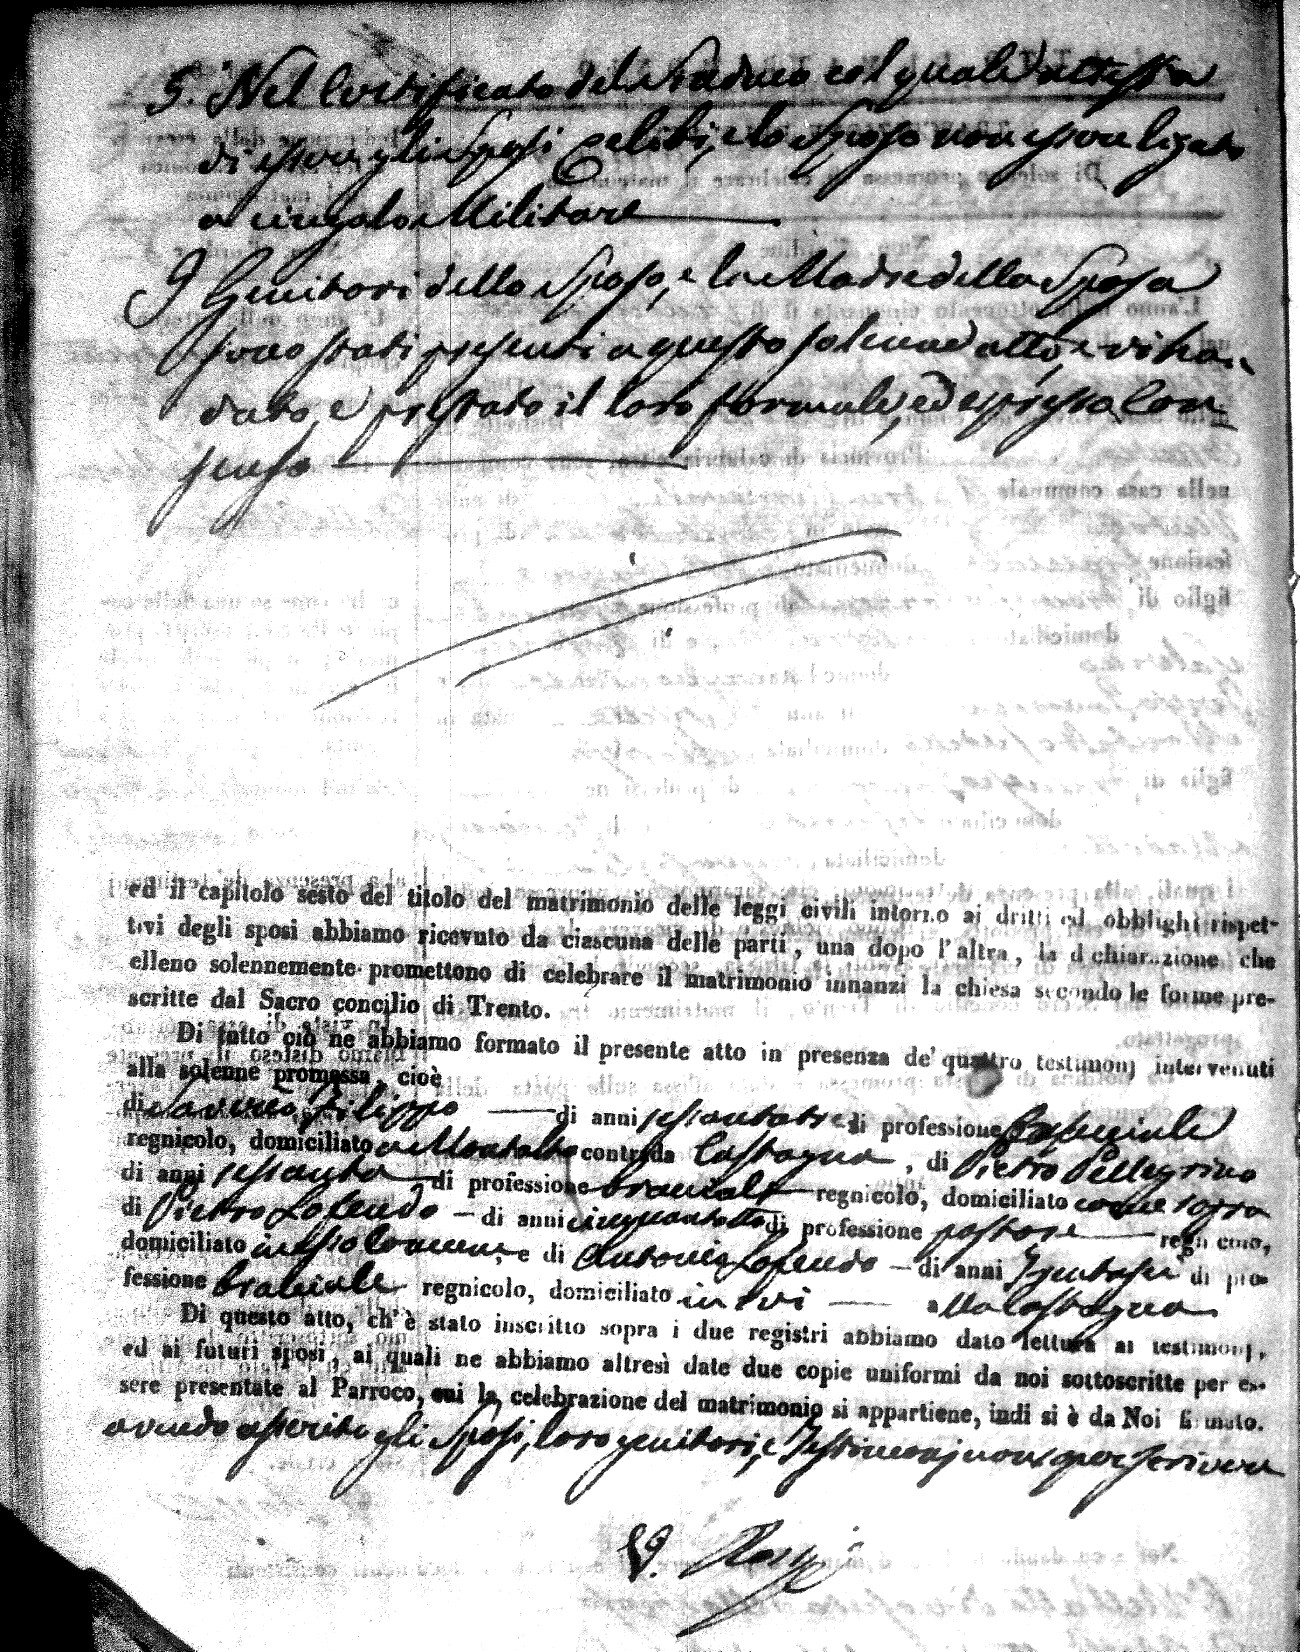 5.° Nel Certificato del Sindaco col quale attesta
di essere gli Sposi Celibi, e lo Sposo non essere ligato
a cingolo Militare
I Genitori dello Sposo, e la Madre della Sposa
sono stati presenti a questo solenne atto, e vi han
dato, e prestato il loro formale, ed espresso con
senso
ed il capitolo sesto del titolo del matrimonio delle leggi civili intorno ai dritti ed obblighi rispet-
tivi degli sposi abbiamo ricevuto da ciascuna delle parti, una dopo l'altra, la dichiarazione che
elleno solennemente promettono di celebrare il matrimonio innanzi la chiesa secondo le forme pre-
scritte dal Sacro concilio di Trento.
Di tutto ciò ne abbiamo formato il presente atto in presenza de' quattro testimonj intervenuti
alla solenne promessa, cioè
di Saverio Filippo di anni sessantatre di professione
regnicolo, domiciliato a Montalto contrada Castagna, di Pietro Pellegrino
di anni sessanta di professione braciale regnicolo, domiciliato come sopra
di Pietro Lofendo di anni cinquantotto di professione pastore regnicolo,
domiciliato in e di Antonio Lofendo di anni di pro-
fessione braciale regnicolo, domiciliato in ivi alla Castagna
Di questo atto, ch'è stato inscritto sopra i due registri abbiamo dato lettura ai testimonj,
ed ai futuri sposi, ai quali ne abbiamo altresì date due copie uniformi da noi sottoscritte per es-
sere presentate al Parroco, cui la celebrazione del matrimonio si appartiene, indi si è da Noi firmato.
avendo asserito gli Sposi, loro genitori, e Testimonj non saper scrivere